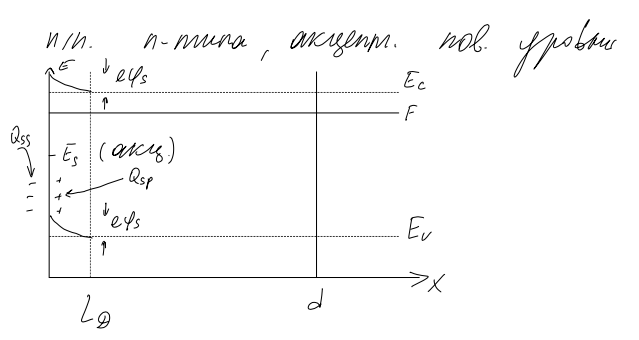 п/п. n-типа, акцепт. пов. уровни
E
eφs
Ec
F
Qss
Es (акц.)
Qsp
eφs
Ev
x
L𝒟
d